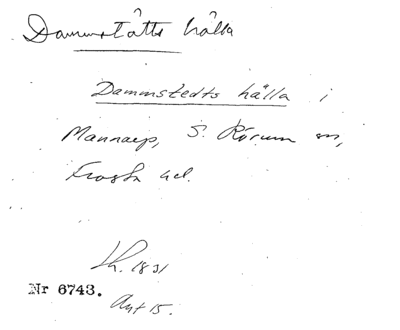 Dammstätts hälla
Dammstedts hälla i
Mannarp, S. Rörum sn,
Frosta hd.
Lh. 1831
Nr 6743.
Ant 15.